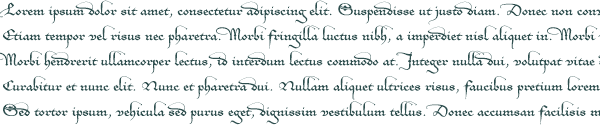 Lorem ipsum dolor sit amet, consectetur adipiscing elit. Suspendisse ut justo diam. Donec non con
Etiam tempor vel risus nec pharetra. Morbi fringilla luctus nibh, a imperdiet nisl aliquet in. Morbi
Morbi hendrerit ullamcorper lectus, id interdum lectus commodo at. Integer nulla dui, volutpat vitae
Curabitur et nunc elit. Nunc et pharetra dui. Nullam aliquet ultrices risus, faucibus pretium lorem
Sed tortor ipsum, vehicula sed purus eget, dignissim vestibulum tellus. Donec accumsan facilisis m